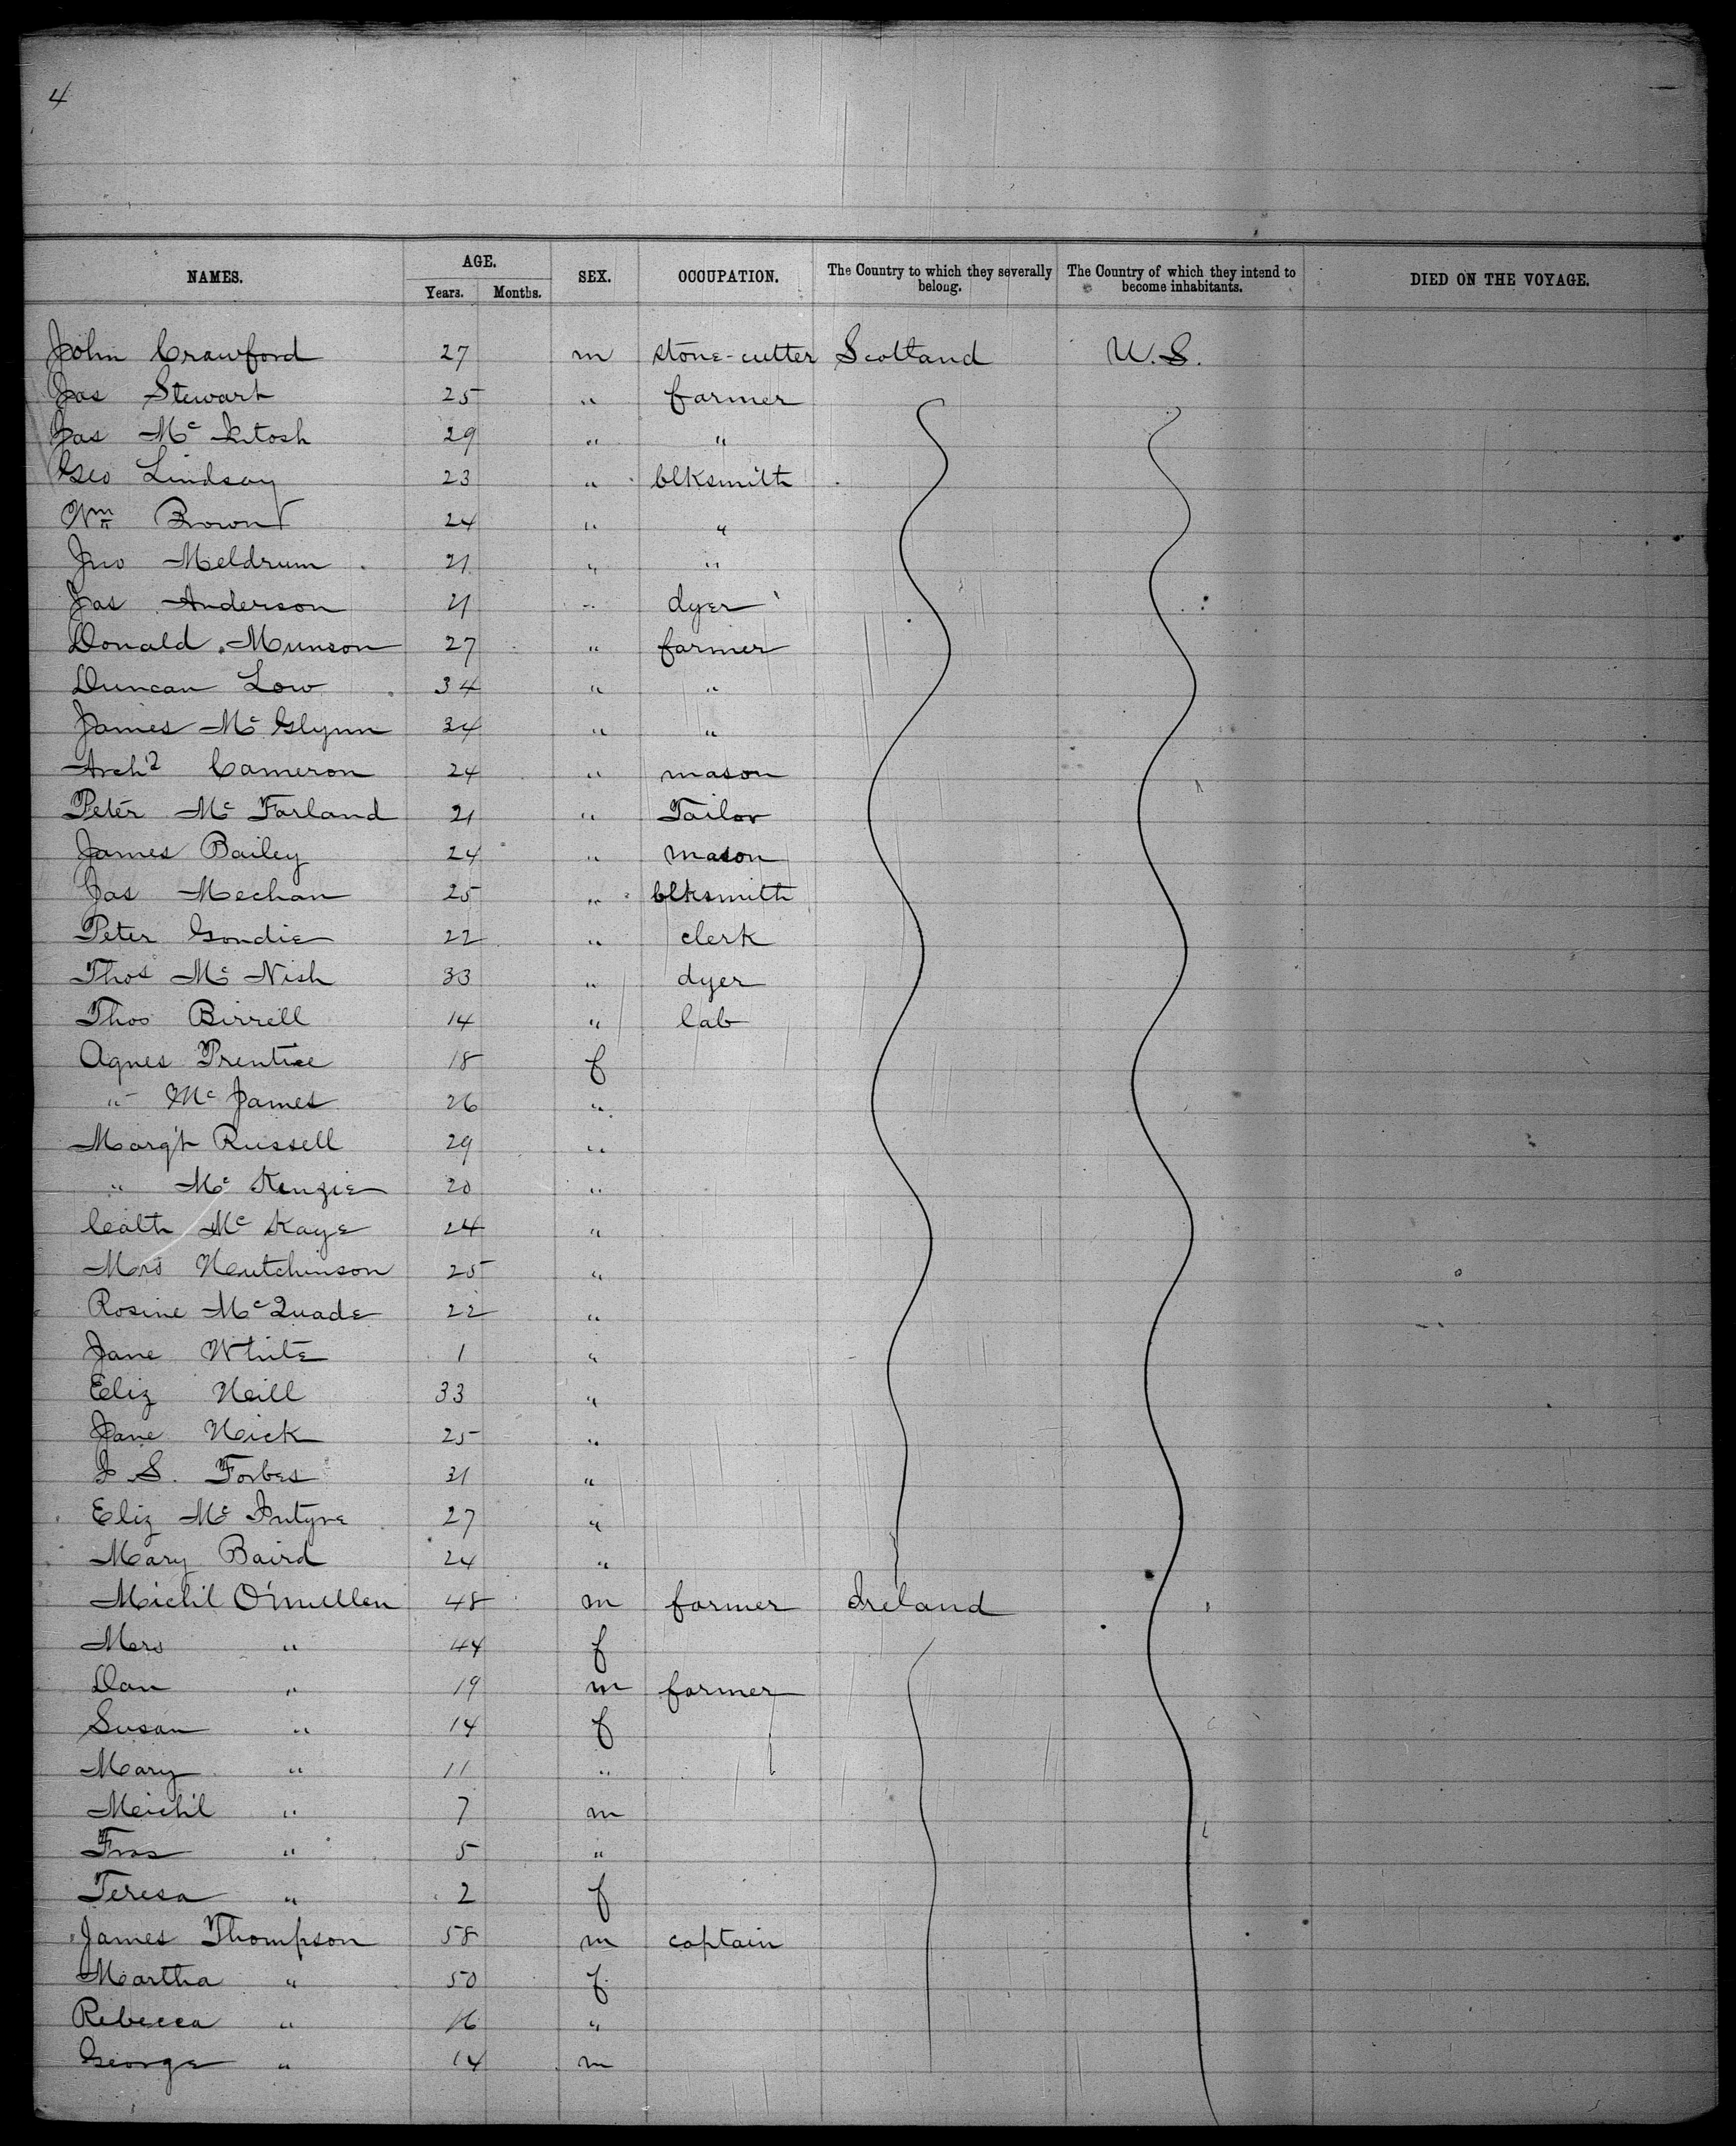 4
NAMES. AGE. SEX. OCCUPATION. The Country to which they severally belong. The Country of which they intend to become inhabitants. DIED ON THE VOYAGE.
Years. Months.
John Crawford 27 m stone-cutter Scotland U.S.
Jas Stewart 25 " farmer
Jas Mc Intosh 29 " "
Geo Lindsay 23 " blksmith
Wm Brown 24 " "
Jno Meldrum 21 " "
Jas Anderson 21 " dyer
Donald Munson 27 " farmer
Duncan Low 34 " "
James Mc Glynn 34 " "
Archd Cameron 24 " mason
Peter Mc Farland 21 " Tailor
James Bailey 24 " mason
Jas Mechan 25 " blksmith
Peter Goudie 22 " clerk
Thos Mc Nish 33 " dyer
Thos Birrell 14 " lab
Agnes Prentice 18 f
" Mc James 26 "
Marg't Russell 29 "
" Mc Kenzie 20 "
Cath Mc Kaye 24 "
Mrs Hutchinson 25 "
Rosine McQuade 22 "
Jane White 1 "
Eliz Neill 33 "
Jane Hick 25 "
J S. Forbes 31 "
Eliz Mc Intyre 27 "
Mary Baird 24 "
Michl O'mullen 48 m farmer Ireland
Mrs " 44 f
Dan " 19 m farmer
Susan " 14 f
Mary " 11 "
Mich'l " 7 m
Fras " 5 "
Teresa " 2 f
James Thompson 58 m captain
Martha " 50 f
Rebecca " 16 "
George " 14 m